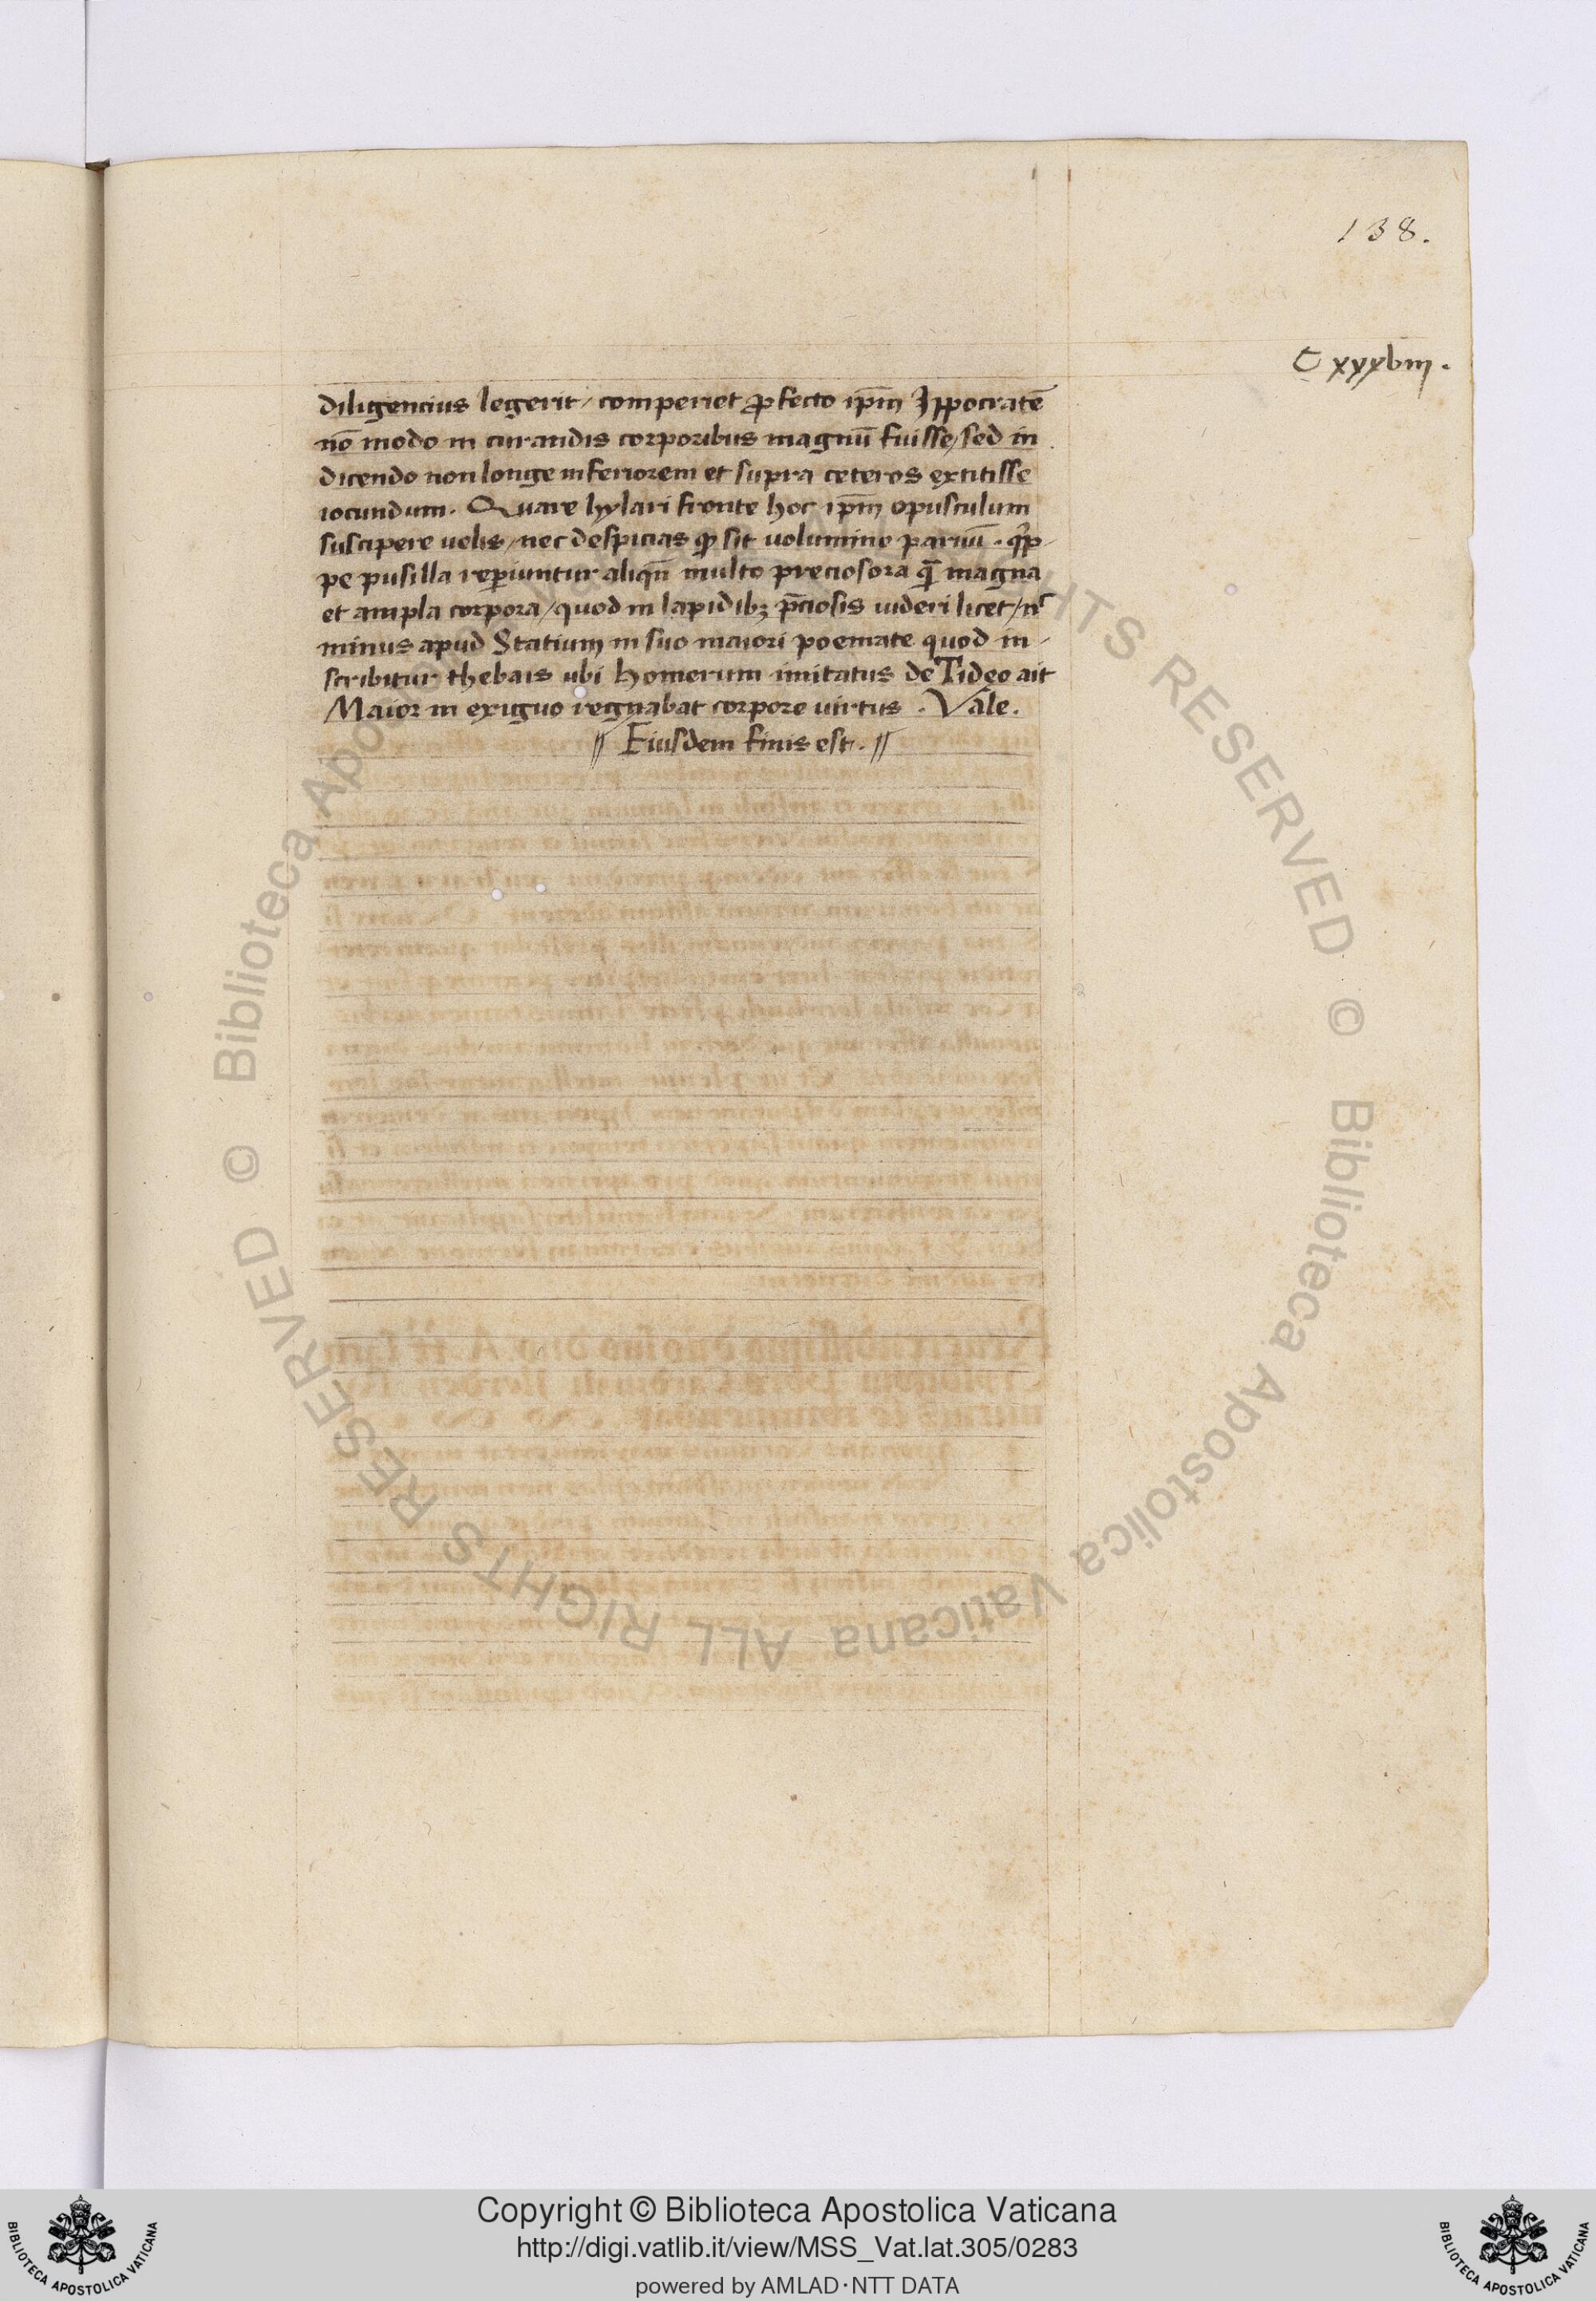 138.
C xxxviii.
diligencius legerit / comperiet ꝓfecto ip̄m Ippocratē
nō modo in curandis corporibus magnū fuisse / sed in
dicendo non longe inferiorem et supra ceteros extitisse
iocundum. Quare hylari fronte hoc ip̄m opusculum
suscipere uelis / nec despicias ꝙ sit uolumine paruū. q̓p-
pe pusilla reꝑiuntur aliqn̄ multo preciosora qᷓ magna
et ampla corpora / quod in lapidibꝫ p̄ciosis uideri licet / n
minus apud Statium in suo maiori poemate quod in-
scribitur thebais ubi Homerum imitatus de Tideo ait
Maior in exiguo regnabat corpore uirtus. Vale.
// Eiusdem finis est. //
© Biblioteca Apostolica Vaticana ALL RIGHTS RESERVED © Biblioteca Apostolica Vaticana ALL RIGHTS RESERVED
Copyright © Biblioteca Apostolica Vaticana
http://digi.vatlib.it/view/MSS_Vat.lat.305/0283
powered by AMLAD·NTT DATA
BIBLIOTECA APOSTOLICA VATICANA
BIBLIOTECA APOSTOLICA VATICANA